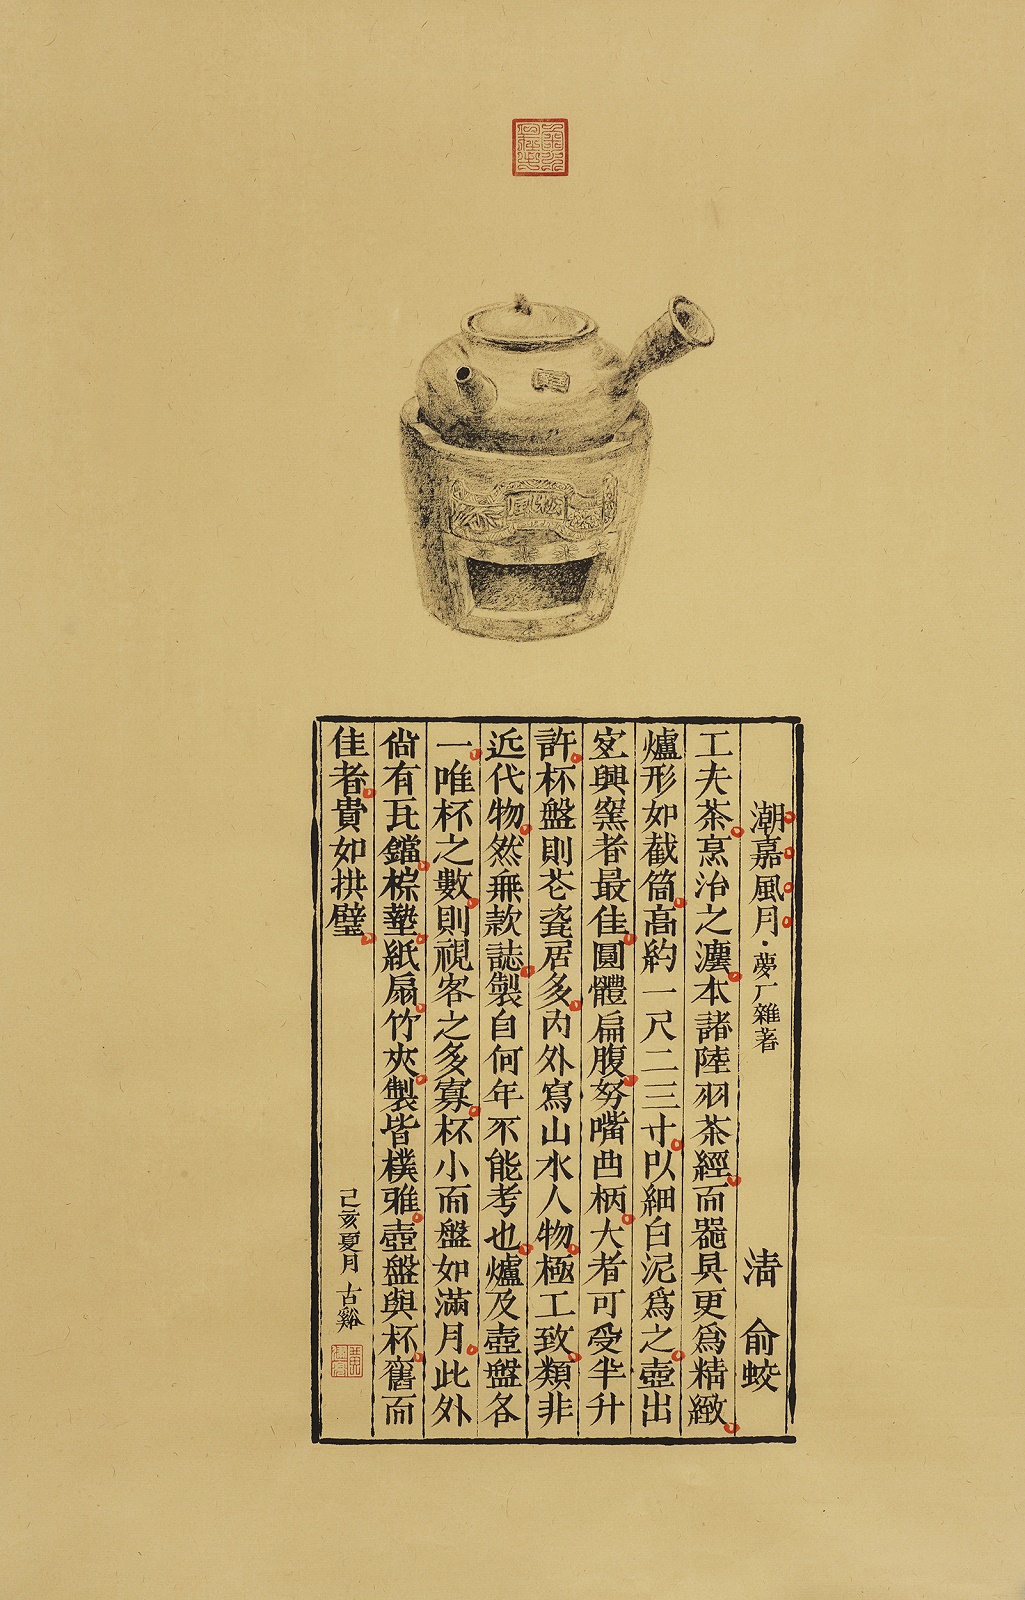 潮嘉風月·夢厂雜著 清 俞蛟
工夫茶烹治之灋本諸陸羽茶經而器具更爲精緻
爐形如截筒高約一尺二三寸以細白泥爲之壺出
宐興窯者最佳圓體扁腹努嘴曲柄大者可受半升
許杯盤則花瓷居多内外寫山水人物極工致類非
近代物然無款誌製自何年不能考也爐及壺盤各
一唯杯之數則視客之多寡杯小而盤如滿月此外
尙有瓦鐺棕墊紙扇竹夾製皆樸雅壺盤與杯舊而
佳者貴如拱璧 己亥夏月 古谿